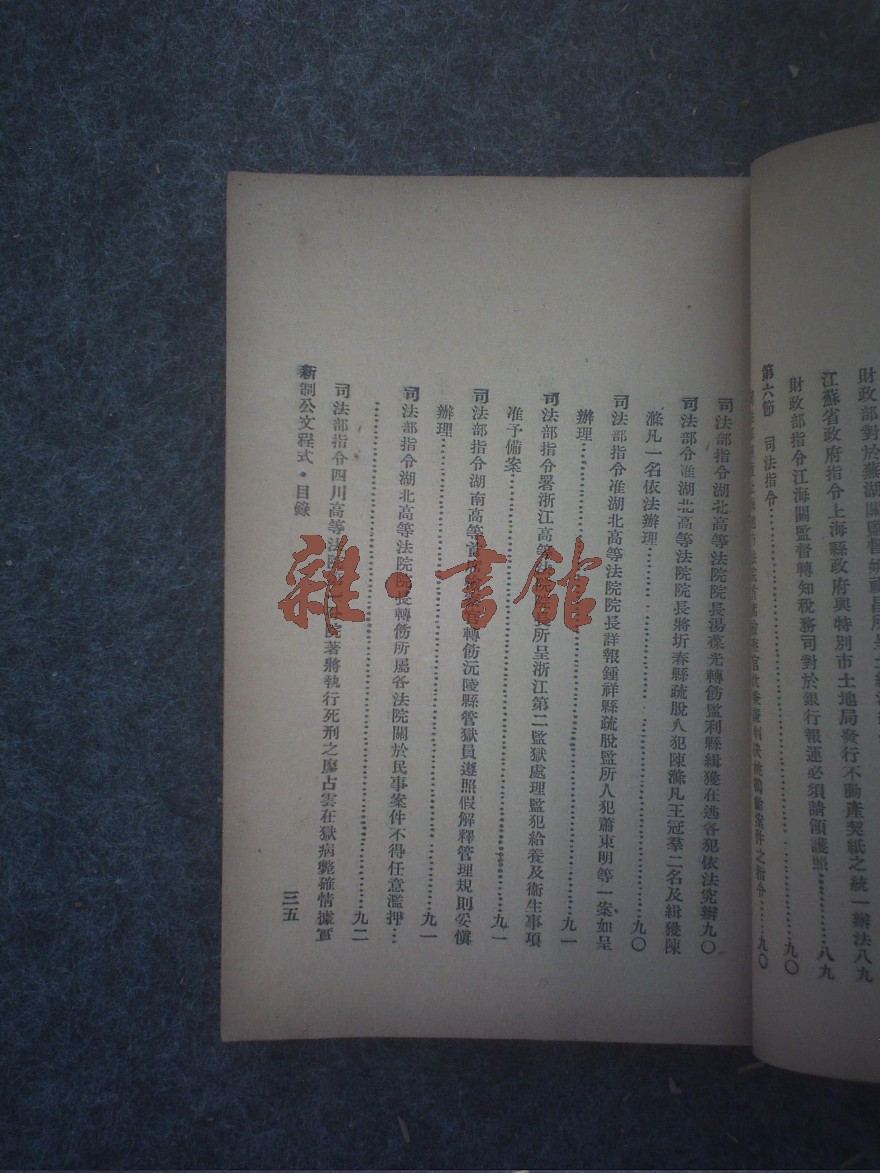 財政部對於蕪湖關監督
江蘇省政府指令上海縣政府與特別市土地局發行不動產契紙之統一辦法八九
財政部指令江海關監督轉知稅務司對於銀行報運必須請領護照………八九
第六節 司法指令………九〇
件之指令……九〇
司法部指令湖北高等法院院長湯葆光轉飭監利縣緝獲在逃各犯依法究辦九〇
司法部令准湖北高等法院院長將圻春縣疏脫人犯陳滌凡王冠羣二名及緝獲陳
滌凡一名依法辦理………九〇
司法部指令准湖北高等法院院長詳報鍾祥縣疏脫監所人犯蕭東明等一案如呈
辦理………九一
司法部指令署浙江高等法院院長所呈浙江第二監獄處理監犯給養及衞生事項
准予備案………九一
司法部指令湖南高等首席檢察官轉飭沅陵縣管獄員遵照假解釋管理規則妥愼
辦理………九一
司法部指令湖北高等法院院長轉飭所屬各法院關於民事案件不得任意濫押…
………九二
司法部指令四川高等法院院著將執行死刑之廖占雲在獄病斃確情據實
新制公文程式・目錄
三五
雜・書館